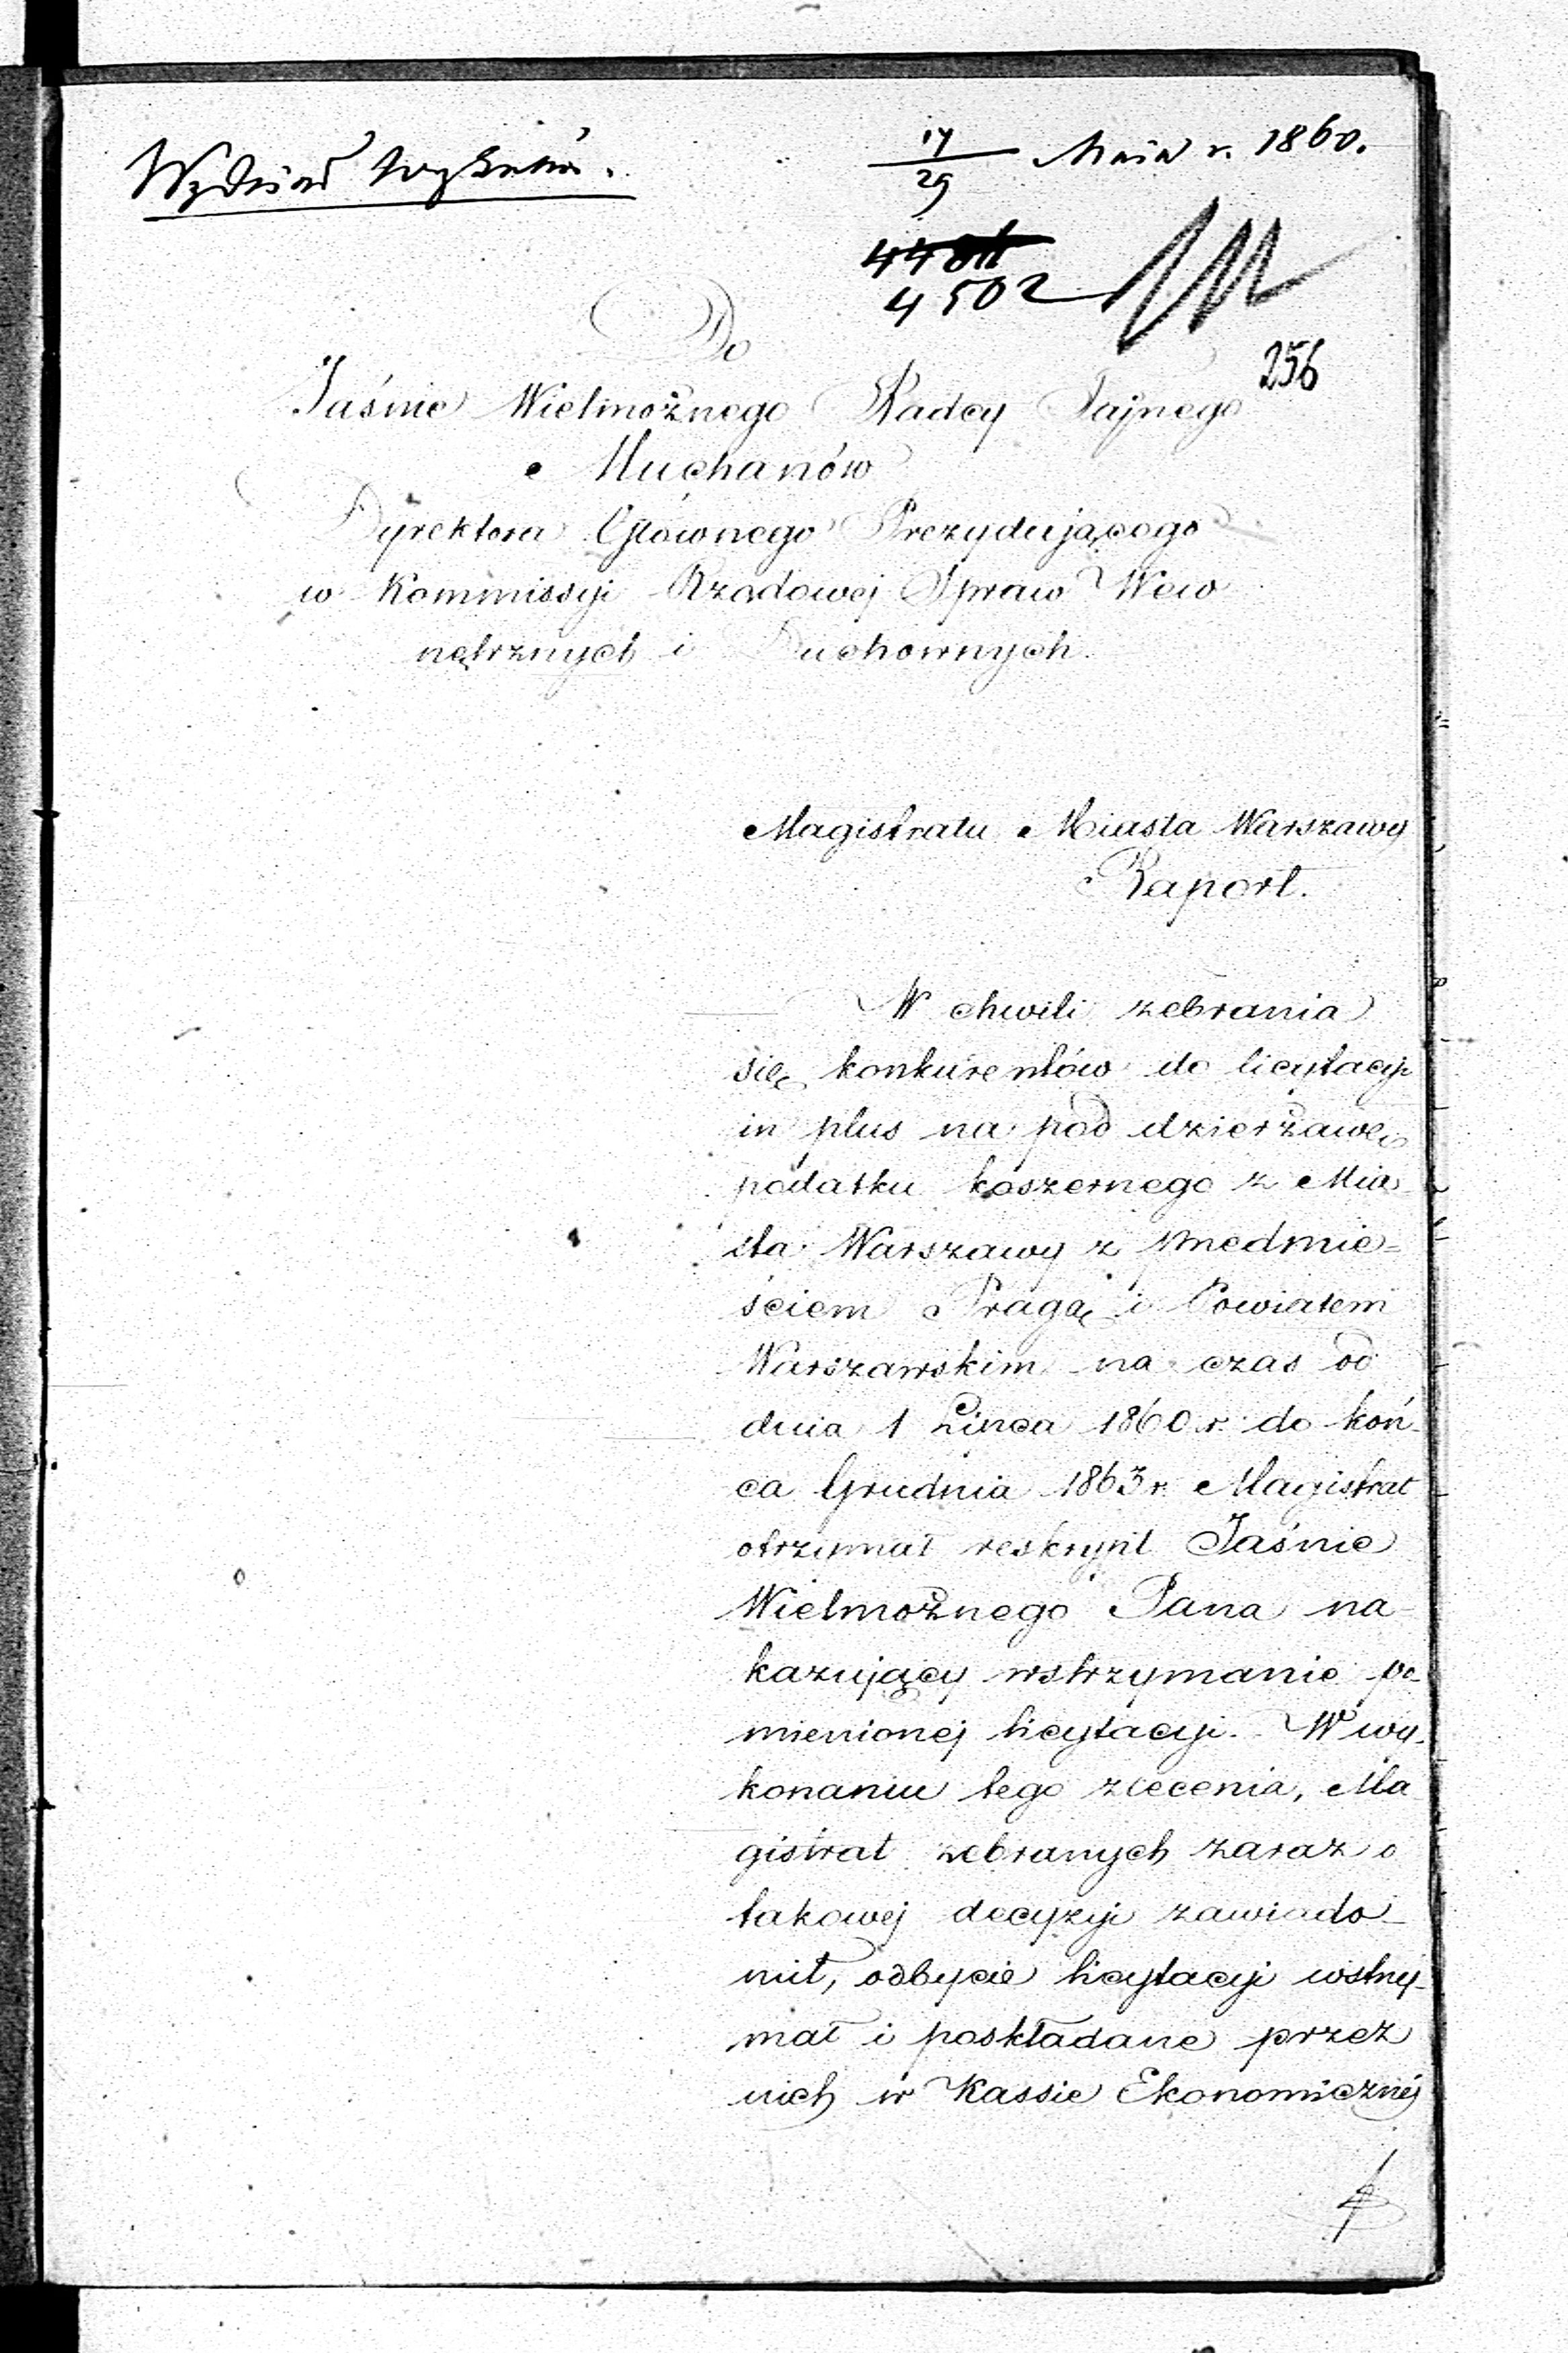 Wydział
17/29 Maia r. 1860.
4502
256
Do
Jaśnie Wielmożnego Radcy Tajnego
Muchanów
Dyrektora Głównego Prezydującego
w Kommissyi Rządowej Spraw Wew
nętrznych i Duchownych.
Magistratu Miasta Warszawy
Raport.
W chwili zebrania
się konkurentów do licytacyi
in plus na pod dzierżawę
podatku koszernego z Mia
sta Warszawy z przedmie=
ściem Pragą i Powiatem
Warszawskim na czas od
dnia 1 Lipca 1860 r. do koń
ca Grudnia 1863 r. Magistrat
otrzymał reskrypt Jaśnie
Wielmożnego Pana na-
kazujący wstrzymanie po-
mienionej licytacyi. W wy-
konaniu tego zlecenia, Ma
gistrat zebranych zaraz o
takowej decyzyi zawiado-
mił, odbycie licytacyi wstrzy-
mał i poskładane przez
nich w Kassie Ekonomicznéj